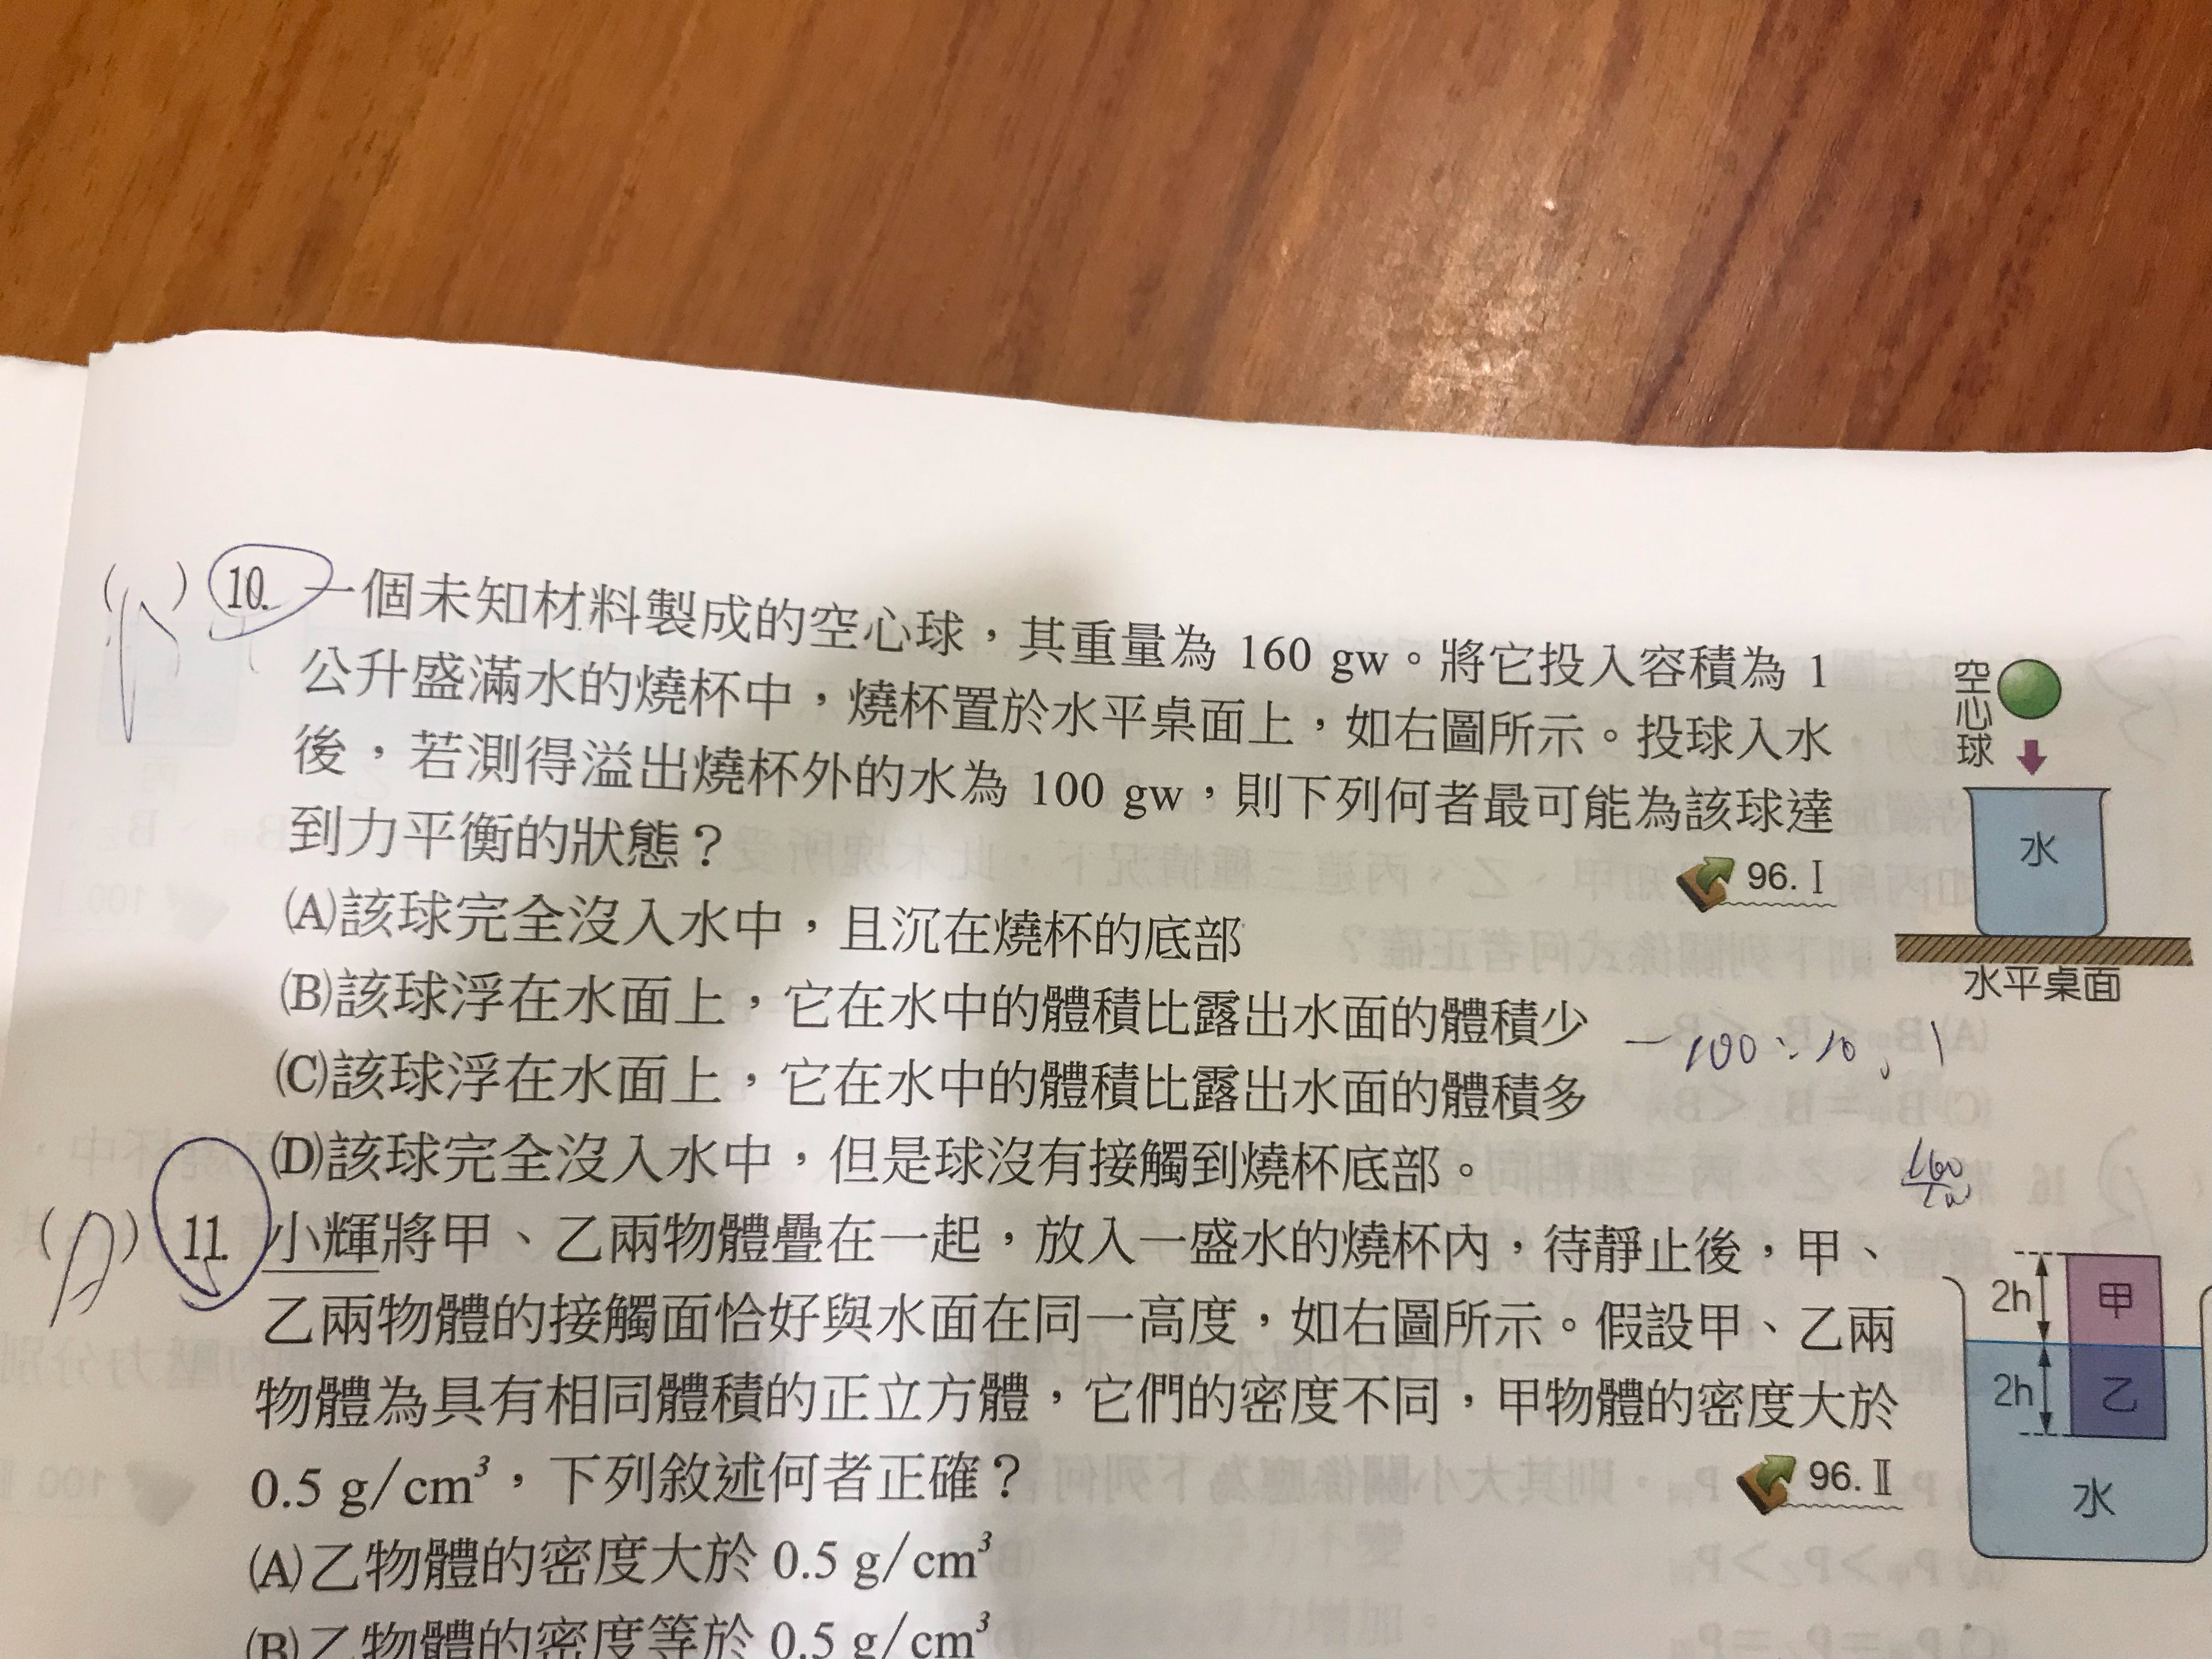 (A) 10. 一個未知材料製成的空心球，其重量為 160 gw。將它投入容積為 1
公升盛滿水的燒杯中，燒杯置於水平桌面上，如右圖所示。投球入水
後，若測得溢出燒杯外的水為 100 gw，則下列何者最可能為該球達
到力平衡的狀態？
96. I
空心球
水
水平桌面
(A)該球完全沒入水中，且沉在燒杯的底部
(B)該球浮在水面上，它在水中的體積比露出水面的體積少
(C)該球浮在水面上，它在水中的體積比露出水面的體積多
(D)該球完全沒入水中，但是球沒有接觸到燒杯底部。
(A) 11. 小輝將甲、乙兩物體疊在一起，放入一盛水的燒杯內，待靜止後，甲、
乙兩物體的接觸面恰好與水面在同一高度，如右圖所示。假設甲、乙兩
物體為具有相同體積的正立方體，它們的密度不同，甲物體的密度大於
0.5 g/cm³，下列敘述何者正確？
96. II
2h 甲
2h 乙
水
(A)乙物體的密度大於 0.5 g/cm³
(B)乙物體的密度等於 0.5 g/cm³